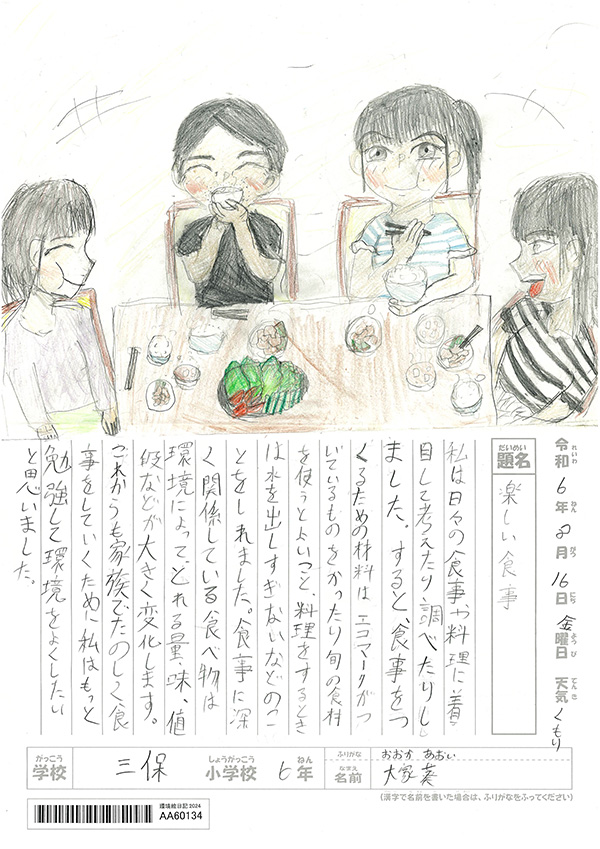 令和6年8月16日金曜日 天気くもり
れいわ ねん がつ にち ようび てんき
だいめい
題名 楽しい食事
私は日々の食事や料理に着
目して考えたり、調べたりし
ました。すると、食事をつ
くるための材料は、エコマークがつ
いているものをかったり旬の食料
を使うとよいこと、料理をするとき
は水を出しすぎないなどのこ
とをしれました。食事に深
く関係している食べ物は
環境によって、とれる量、味、値
段などが大きく変化します。
これからも家族でたのしく食
事をしていくために私はもっと
勉強して環境をよくしたい
と思いました。
がっこう しょうがっこう ねん
学校 三保 小学校 6年
ふりがな おおか あおい
なまえ
名前 大家 葵
(漢字で名前を書いた場合は、ふりがなをふってください)
環境絵日記 2024
AA60134